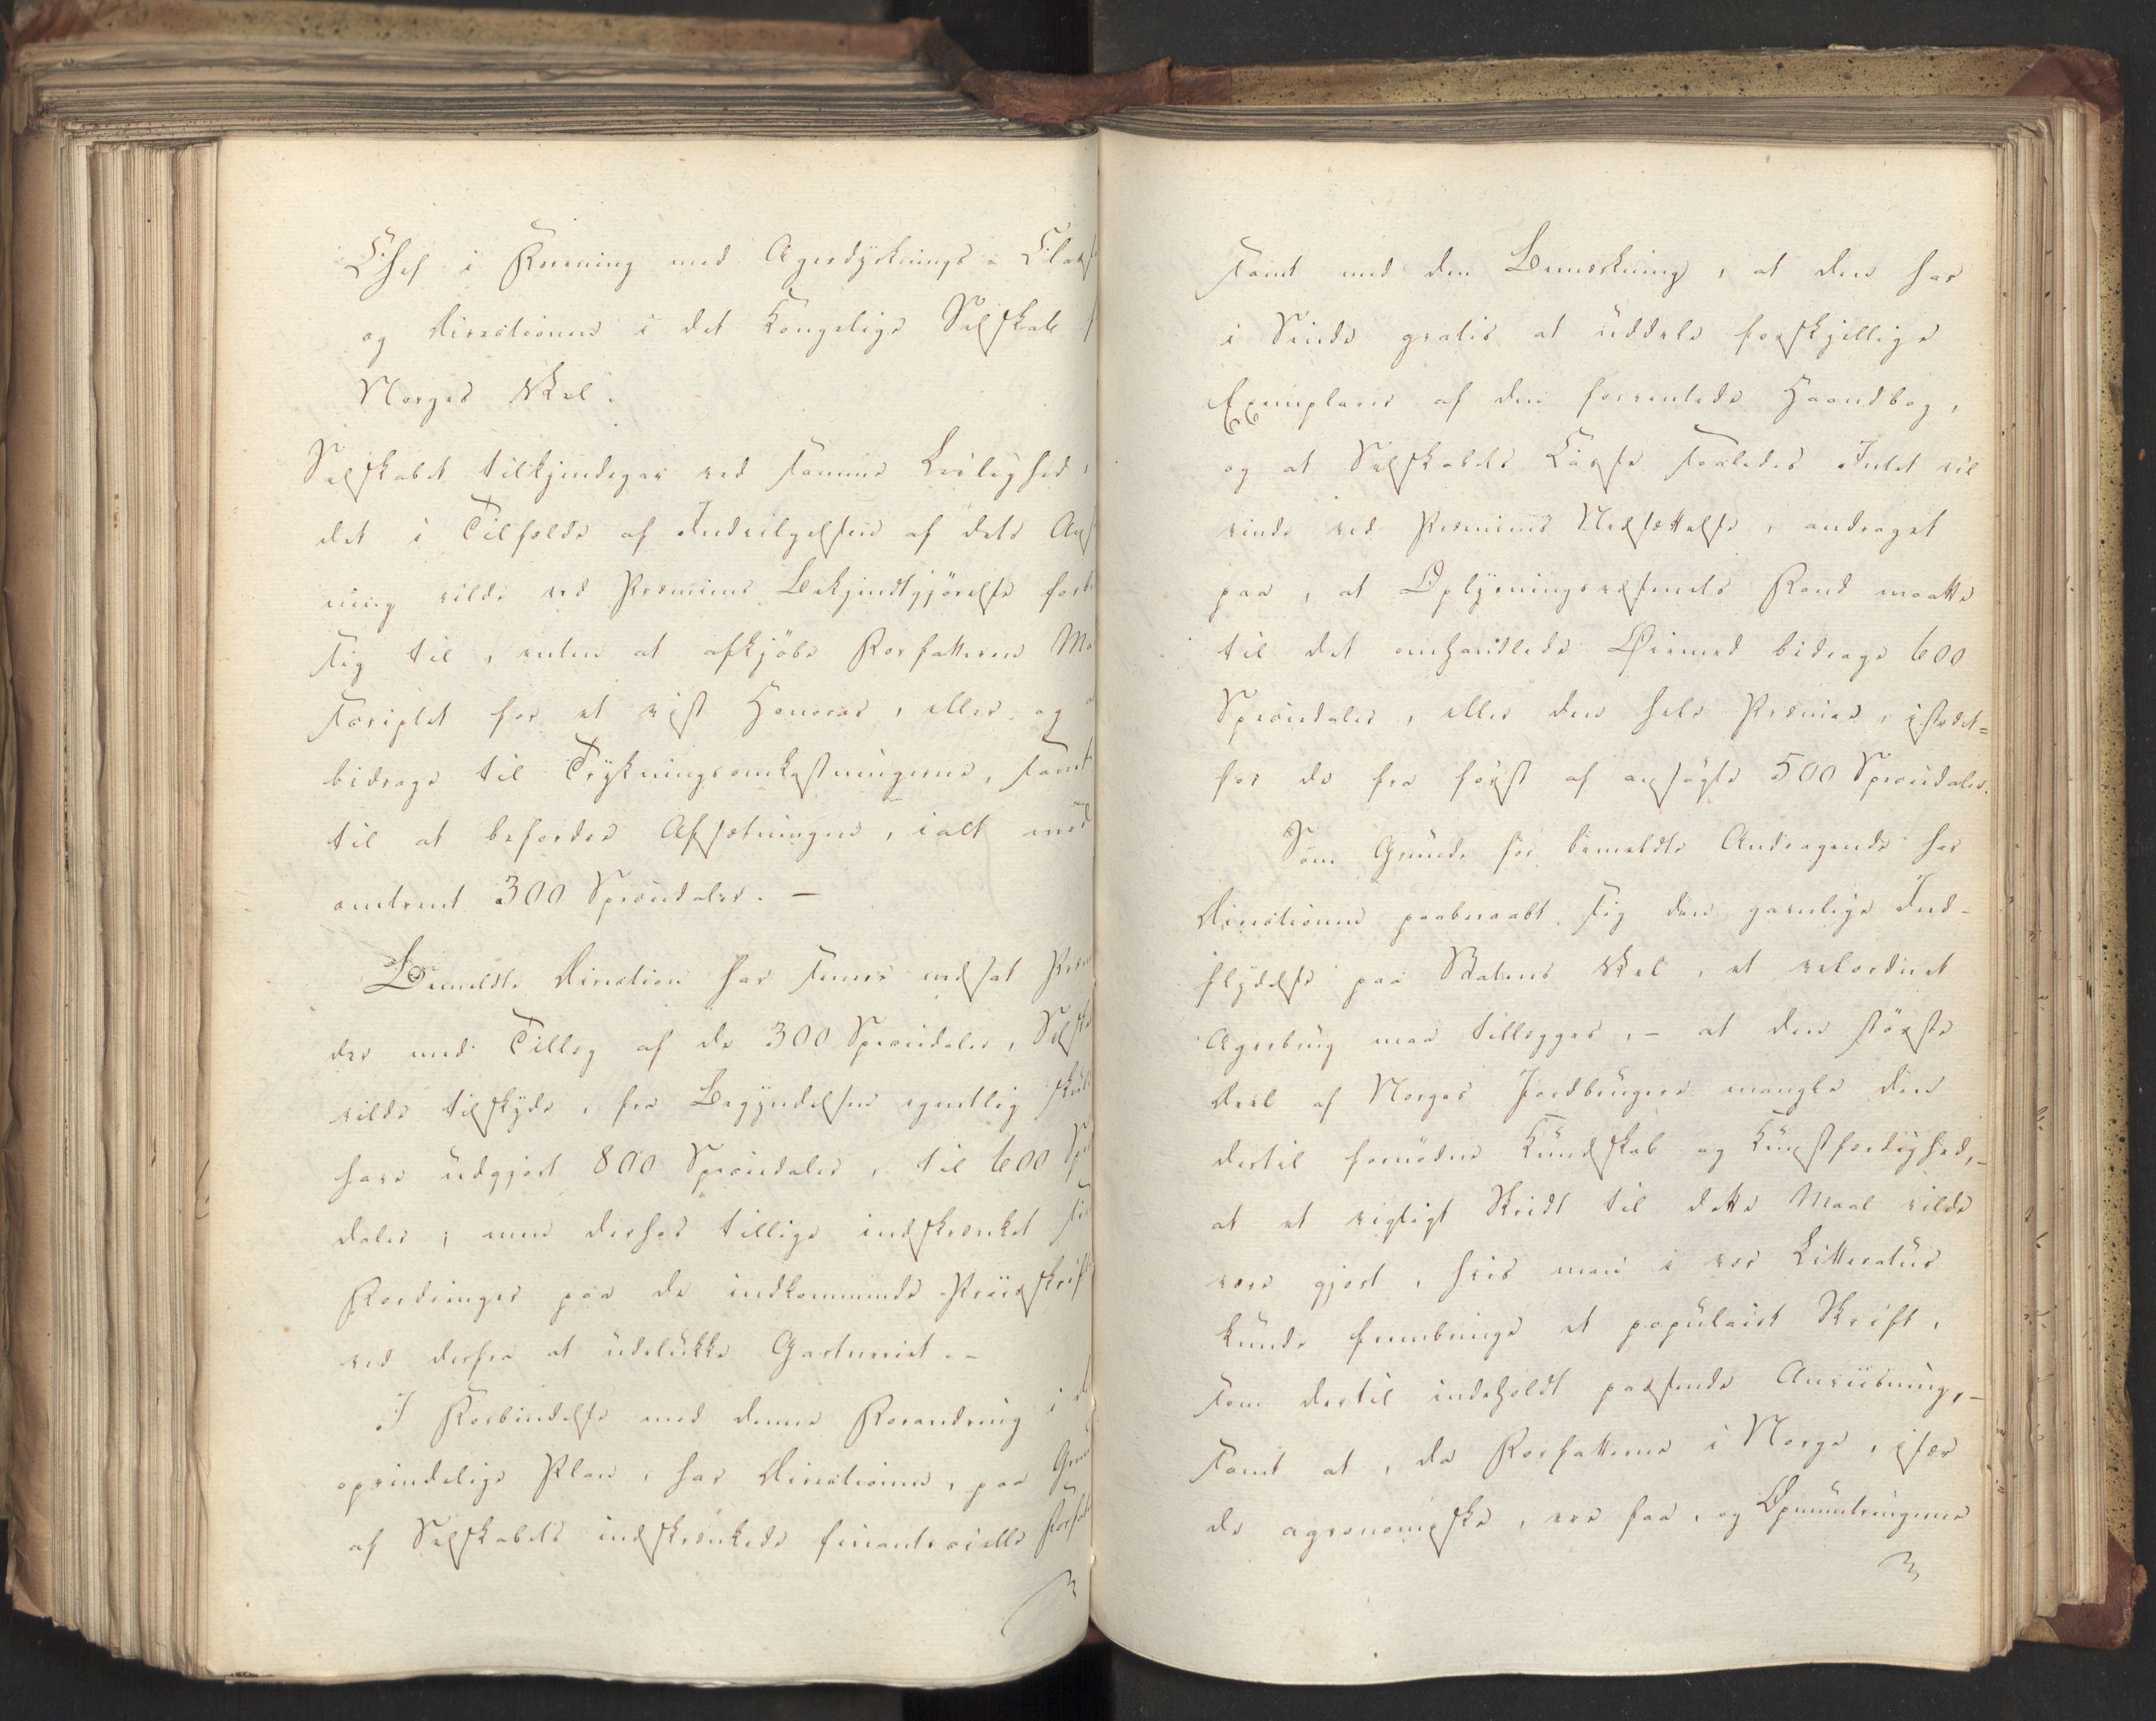 Chef i Forening med Agerdyrknings-Class
og Directionen i det Kongelige Selskab f
Norges Vel.
Selskabet tilkjendegav ved samme Leilighed,
det i Tilfælde af Indvilgelsen af dets An
ning vilde ved Præmiens Bekjendtgjörelse forb
sig til, enten at afkjöbe Forfatteren Ma
scriptet for et vist Honorar, eller og
bidrage til Trykningsomkostningerne, samt
til at befordre Afsætningen, ialt med
omtrent 300 Speciedaler. –
Bemeldte Direction har senere nedsat Præm
der med Tillæg af de 300 Speciedaler, Selsk
vilde tilskyde, fra Begyndelsen egentlig skul
have udgjort 800 Speciedaler, til 600 Spe
daler; men derhos tillige indskrænket si
Fordringer paa de indkommende Priisskrift
ved derfra at udelukke Gartneriet. –
I Forbindelse med denne Forandring i d
oprindelige Plan, har Directionen, paa Gru
af Selskabets indskrænkede financielle Forfat
samt med den Bemærkning, at den har
i Sinde gratis at uddele forskjellige
Exemplarer af den forventede Haandbog,
og at Selskabets Casse saaledes Intet vil
vinde ved Præmiens Nedsættelse, andraget
paa, at Oplysningsvæsenets Fond maatte
til det omhandlede Öiemed bidrage 600
Speciedaler, eller den hele Præmie, istedet-
for de fra först af ansögte 500 Speciedaler.
Som Grunde for bemeldte Andragende har
Directionen paaberaabt sig den gavnlige Ind-
flydelse paa Statens Vel, et velordnet
Agerbrug maa tillægges, – at den störste
Deel af Norges Jordbrugere mangle den
dertil fornödne Kundskab og Kunstfærdighed, –
at et vigtigt Skridt til dette Maal vilde
være gjort, hvis man i vor Litteratur
kunde frembringe et populairt Skrift,
som dertil indeholdt passende Anviisning, –
samt at, da Forfatterne i Norge, især
de agronomiske, ere faa, og Opmuntringerne